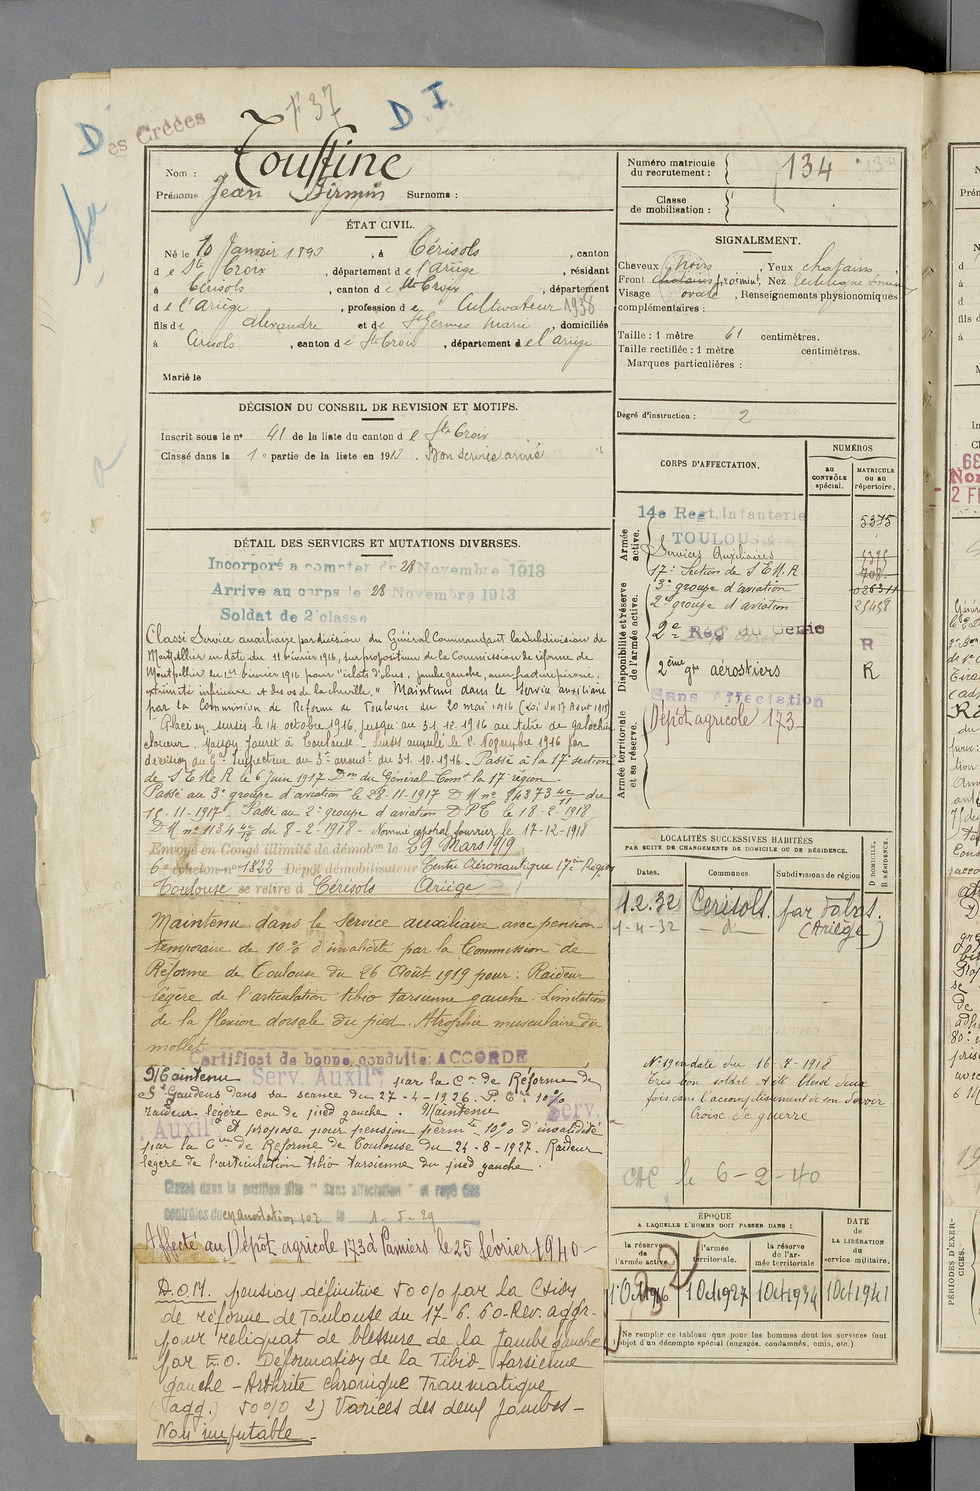 F 37
D
D I.
Des Crêtes
Touffine
Nom :
Prénoms Jean Firmin Surnoms :
Numéro matricule du recrutement : 134
Classe de mobilisation :
ÉTAT CIVIL.
Né le 10 Janvier 1893, à Cérisols, canton
de Ste Croix, département de l'Ariège, résidant
à Cérisols, canton de Ste Croix, département
de l'Ariège, profession de Cultivateur 1938
fils de Alexandre et de St Germes Marie, domiciliés
à Cérisols, canton de Ste Croix, département de l'Ariège
Marié le
SIGNALEMENT.
Cheveux noirs, Yeux chatains
Front proémint, Nez Rectiligne
Visage ovale, Renseignements physionomiques
complémentaires :
Taille : 1 mètre 61 centimètres.
Taille rectifiée : 1 mètre centimètres.
Marques particulières :
Degré d'instruction : 2
DÉCISION DU CONSEIL DE REVISION ET MOTIFS.
Inscrit sous le no 41 de la liste du canton de Ste Croix
Classé dans la 1e partie de la liste en 1913. Bon service armé
DÉTAIL DES SERVICES ET MUTATIONS DIVERSES.
Incorporé a compter du 28 Novembre 1913
Arrive au corps le 28 Novembre 1913
Soldat de 2e classe
Classé Service auxiliaire par décision du Général Commandant la subdivision de
Montpellier en date du 11 février 1916, sur proposition de la Commission de réforme de
Montpellier du 1er février 1916 pour "éclats d'obus, jambe gauche, avec fracture péroné,
extrémité inférieure et des os de la cheville." Maintenu dans le Service auxiliaire
par la Commission de Réforme de Toulouse du 20 mai 1916 (Loi du 17 Aout 1915)
Placé en sursis le 14 octobre 1916 jusqu'au 31.12.1916 au titre de galochier
cloueur. Maison Jauret à Toulouse. Sursis annulé le 2 Novembre 1916 par
décision du Gal Inspecteur du 3e arrondt du 31.10.1916. Passé à la 17e section
de S E M R le 6 Juin 1917. Don du Général Comt la 17 région.
Passé au 3e groupe d'aviation le 28-11-1917 D M no 84373 4c/11 du
15-11-1917. Passé au 2e groupe d'aviation D P C le 18-2-1918
D M no 1134 4c/12 du 8-2-1918. Nommé caporal fourrier le 17-12-1918
Envoyé en Congé illimité de démobon le 29 Mars 1919
6e échelon no 1822 Dépôt démobilisateur Centre Aéronautique 17ème Région
Toulouse se retire à Cérisols Ariège
Maintenu dans le Service auxiliaire avec pension
temporaire de 10% d'invalidité par la Commission de
Réforme de Toulouse du 26 Août 1919 pour : Raideur
légère de l'articulation tibio tarsienne gauche. Limitation
de la flexion dorsale du pied. Atrophie musculaire du
mollet
Certificat de bonne conduite: ACCORDÉ
Maintenu Serv. Auxilre par la Con de Réforme de
St Gaudens dans sa séance du 27-4-1926. P. Cre 10%
raideur légère cou de pied gauche. Maintenu Serv.
Auxilre et proposé pour pension permte 10% d'invalidité
par la Con de Réforme de Toulouse du 24-8-1927. Raideur
légère de l'articulation tibio tarsienne du pied gauche.
Classé dans la position dite "Sans affectation" et rayé des
contrôles du centre mobilisation 102 le 1-5-29
Affecté au Dépôt agricole 173 à Pamiers le 25 février 1940 -
D.O.M. pension définitive 50% par la Csion
de réforme de Toulouse du 17.6.60 - Rev. aggr.
pour reliquat de blessure de la jambe gauche
par E.O. Déformation de la Tibio-tarsienne
gauche - Arthrite chronique Traumatique
(agg.) 50% 2) Varices des deux jambes -
Non imputable. -
CORPS D'AFFECTATION.
NUMÉROS
au CONTRÔLE spécial.
MATRICULE ou au répertoire.
Armée active.
14e Regt. Infanterie
TOULOUSE
5375
Services Auxiliaires 5375
17e Section de S.E.M.R. 708
Disponibilité et réserve de l'armée active.
3e groupe d'aviation 026311
2e groupe d'aviation 25458
2e Reg du Génie R
2ème gr aérostiers R
Sans Affectation
Armée territoriale et sa réserve.
Dépôt agricole 173
LOCALITÉS SUCCESSIVES HABITÉES
PAR SUITE DE CHANGEMENTS DE DOMICILE OU DE RÉSIDENCE.
Dates. Communes. Subdivisions de région D DOMICILE, R RÉSIDENCE.
1.2.32 Cerisols. par Fabas.
1-4-32 - d - (Ariège)
No 19 en date du 16-7-1918
Très bon soldat. A été blessé deux
fois dans l'accomplissement de son devoir
Croix de guerre
CAC le 6-2-40
ÉPOQUE
A LAQUELLE L'HOMME DOIT PASSER DANS :
DATE DE LA LIBÉRATION du service militaire.
la réserve de l'armée active.
l'armée territoriale.
la réserve de l'armée territoriale
1 Oct 1916 1 Oct 1927 1 Oct 1934 1 Oct 1941
Ne remplir ce tableau que pour les hommes dont les services font
l'objet d'un décompte spécial (engagés, condamnés, omis, etc.)
PÉRIODES D'EXERCICES.